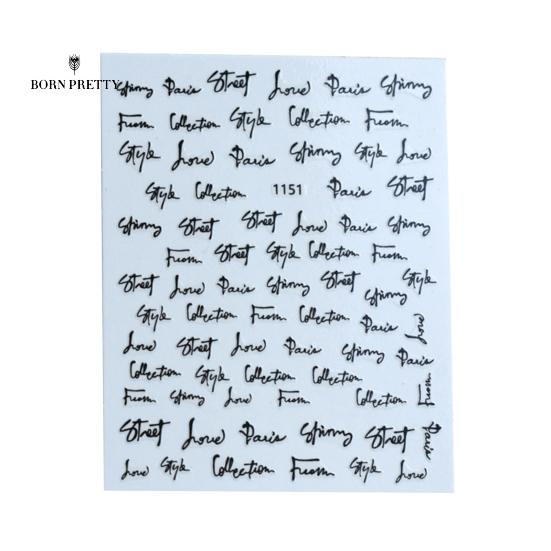 BORN PRETTY
Spinny Paris Street Love Paris Spinny
From Collection Style Collection From
Style Love Paris Spinny Style Love
Style Collection 1151 Paris Street
Spinny Street Street Love Paris Spinny
From Street Style Collection From
Street Love Paris Spinny Street Spinny Style
Style Collection From Collection Paris Love
Love Street Love Paris Spinny Paris
Collection Style Collection Collection
From Spinny Love From Collection From
Street Love Paris Spinny Street Paris
Love Style Collection From Style Love